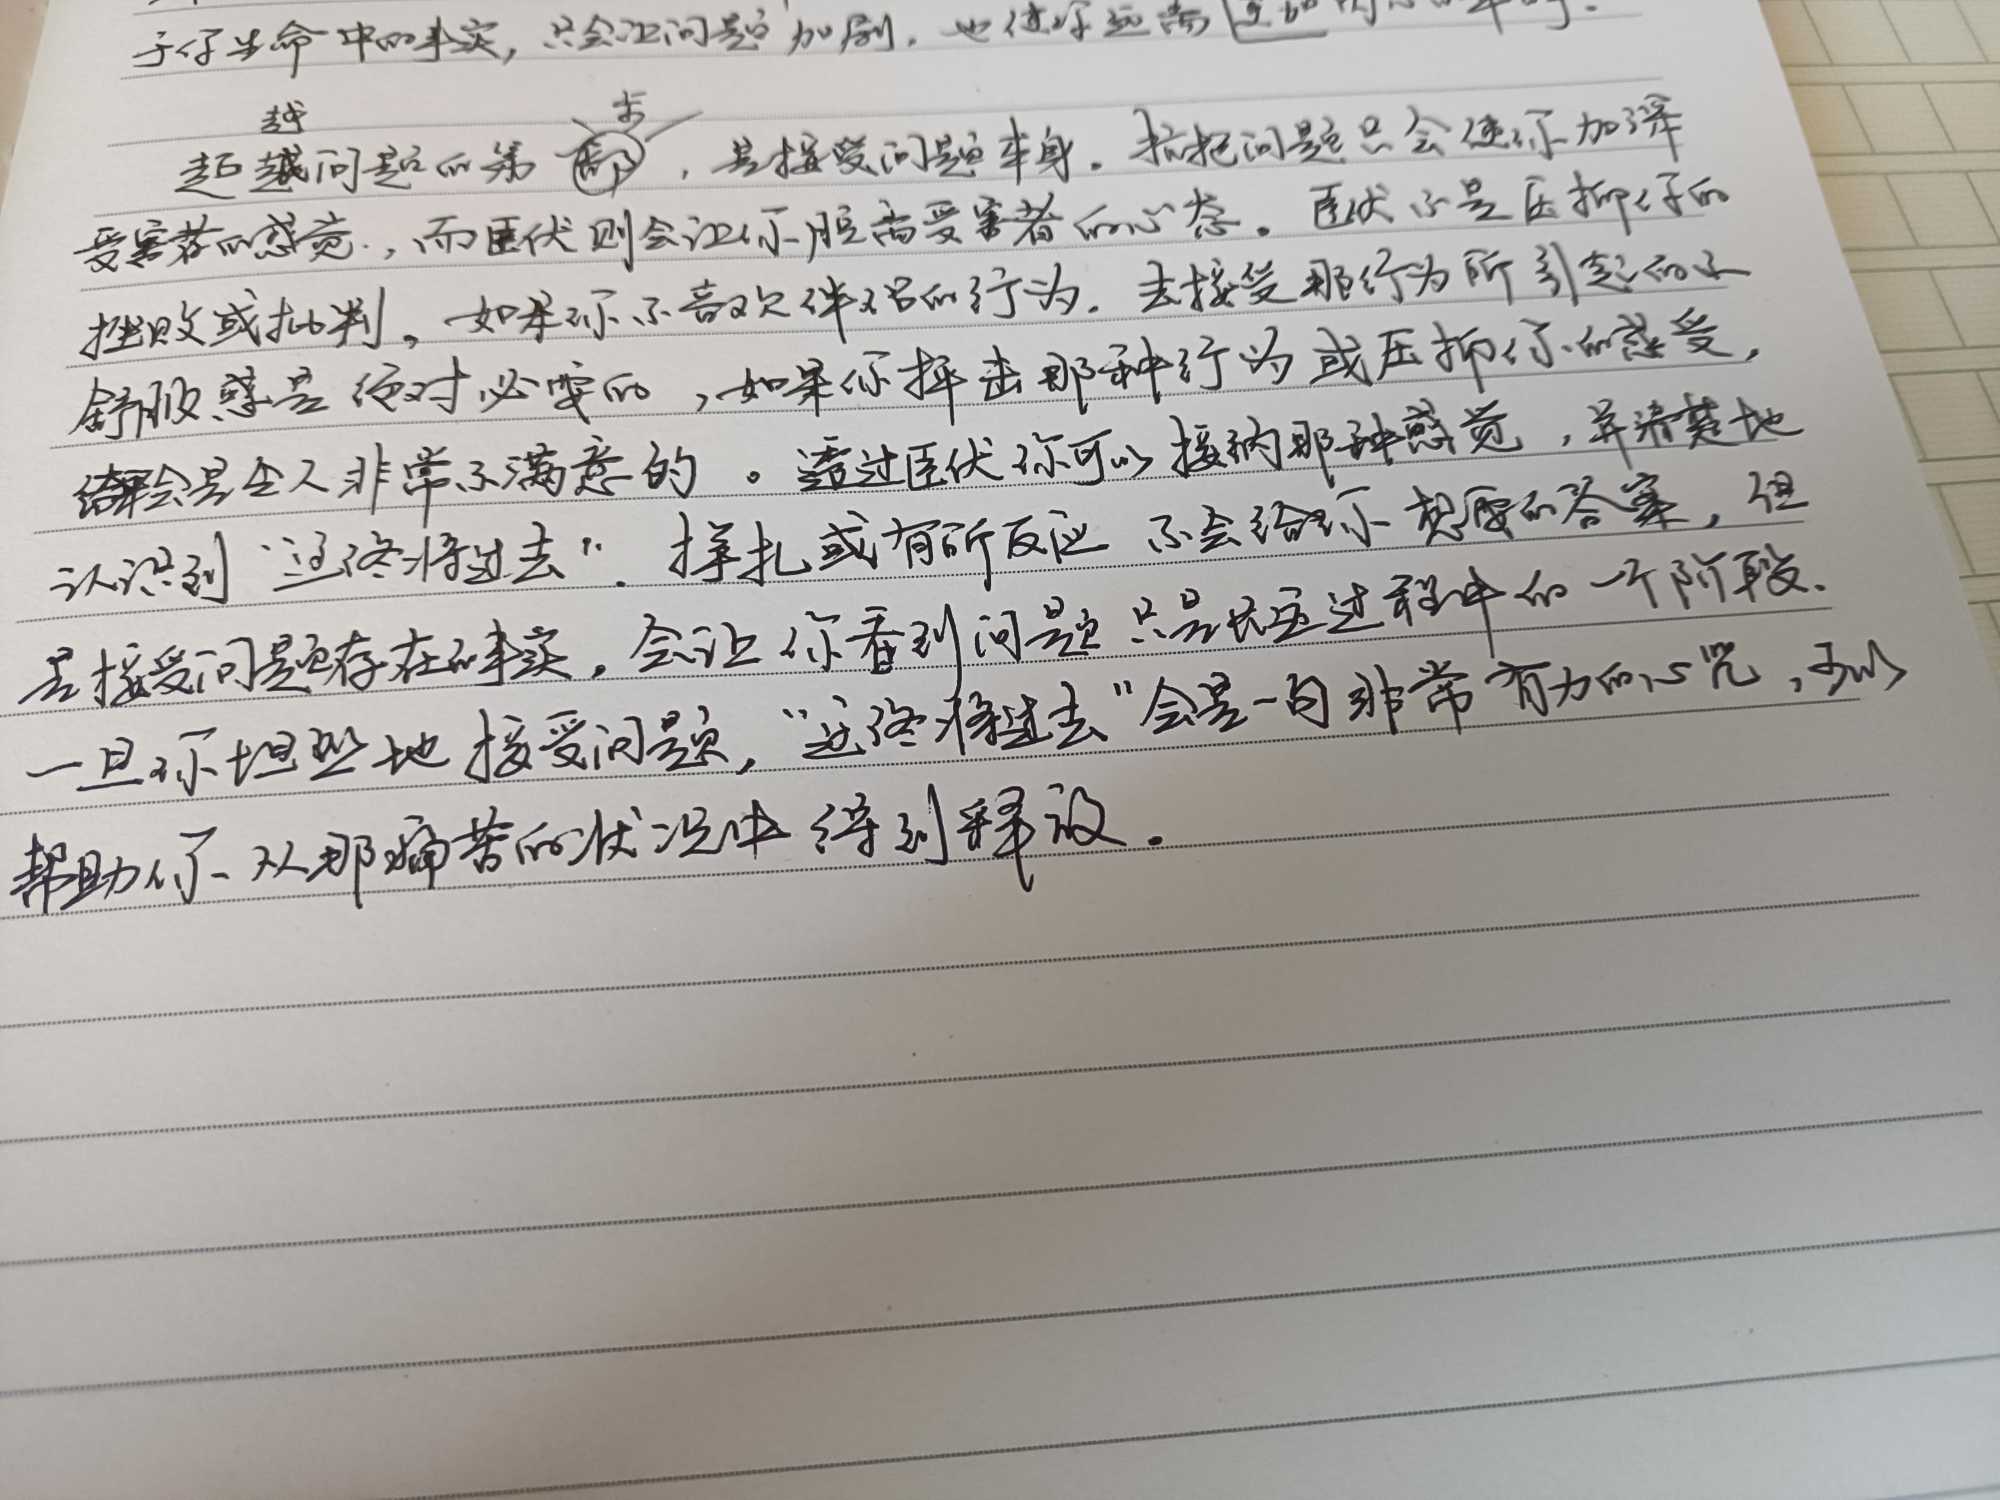 于你生命中的事实，只会让问题加剧，也使你远离
越 步
超越问题的第，是接受问题本身。抗拒问题只会使你加深
受害者的感觉，而臣伏则会让你脱离受害者的心态。臣伏不是压抑你的
挫败或批判。如果你不喜欢伴侣的行为，去接受那行为所引起的不
舒服感是绝对必要的，如果你抨击那种行为或压抑你的感受，
结果会是令人非常不满意的。透过臣伏你可以接纳那种感觉，并清楚地
认识到“这终将过去”。挣扎或有所反应不会给你想要的答案，但
是接受问题存在的事实，会让你看到问题只是成长过程中的一个阶段。
一旦你坦然地接受问题，“这终将过去”会是一句非常有力的心咒，可以
帮助你从那痛苦的状况中得到释放。